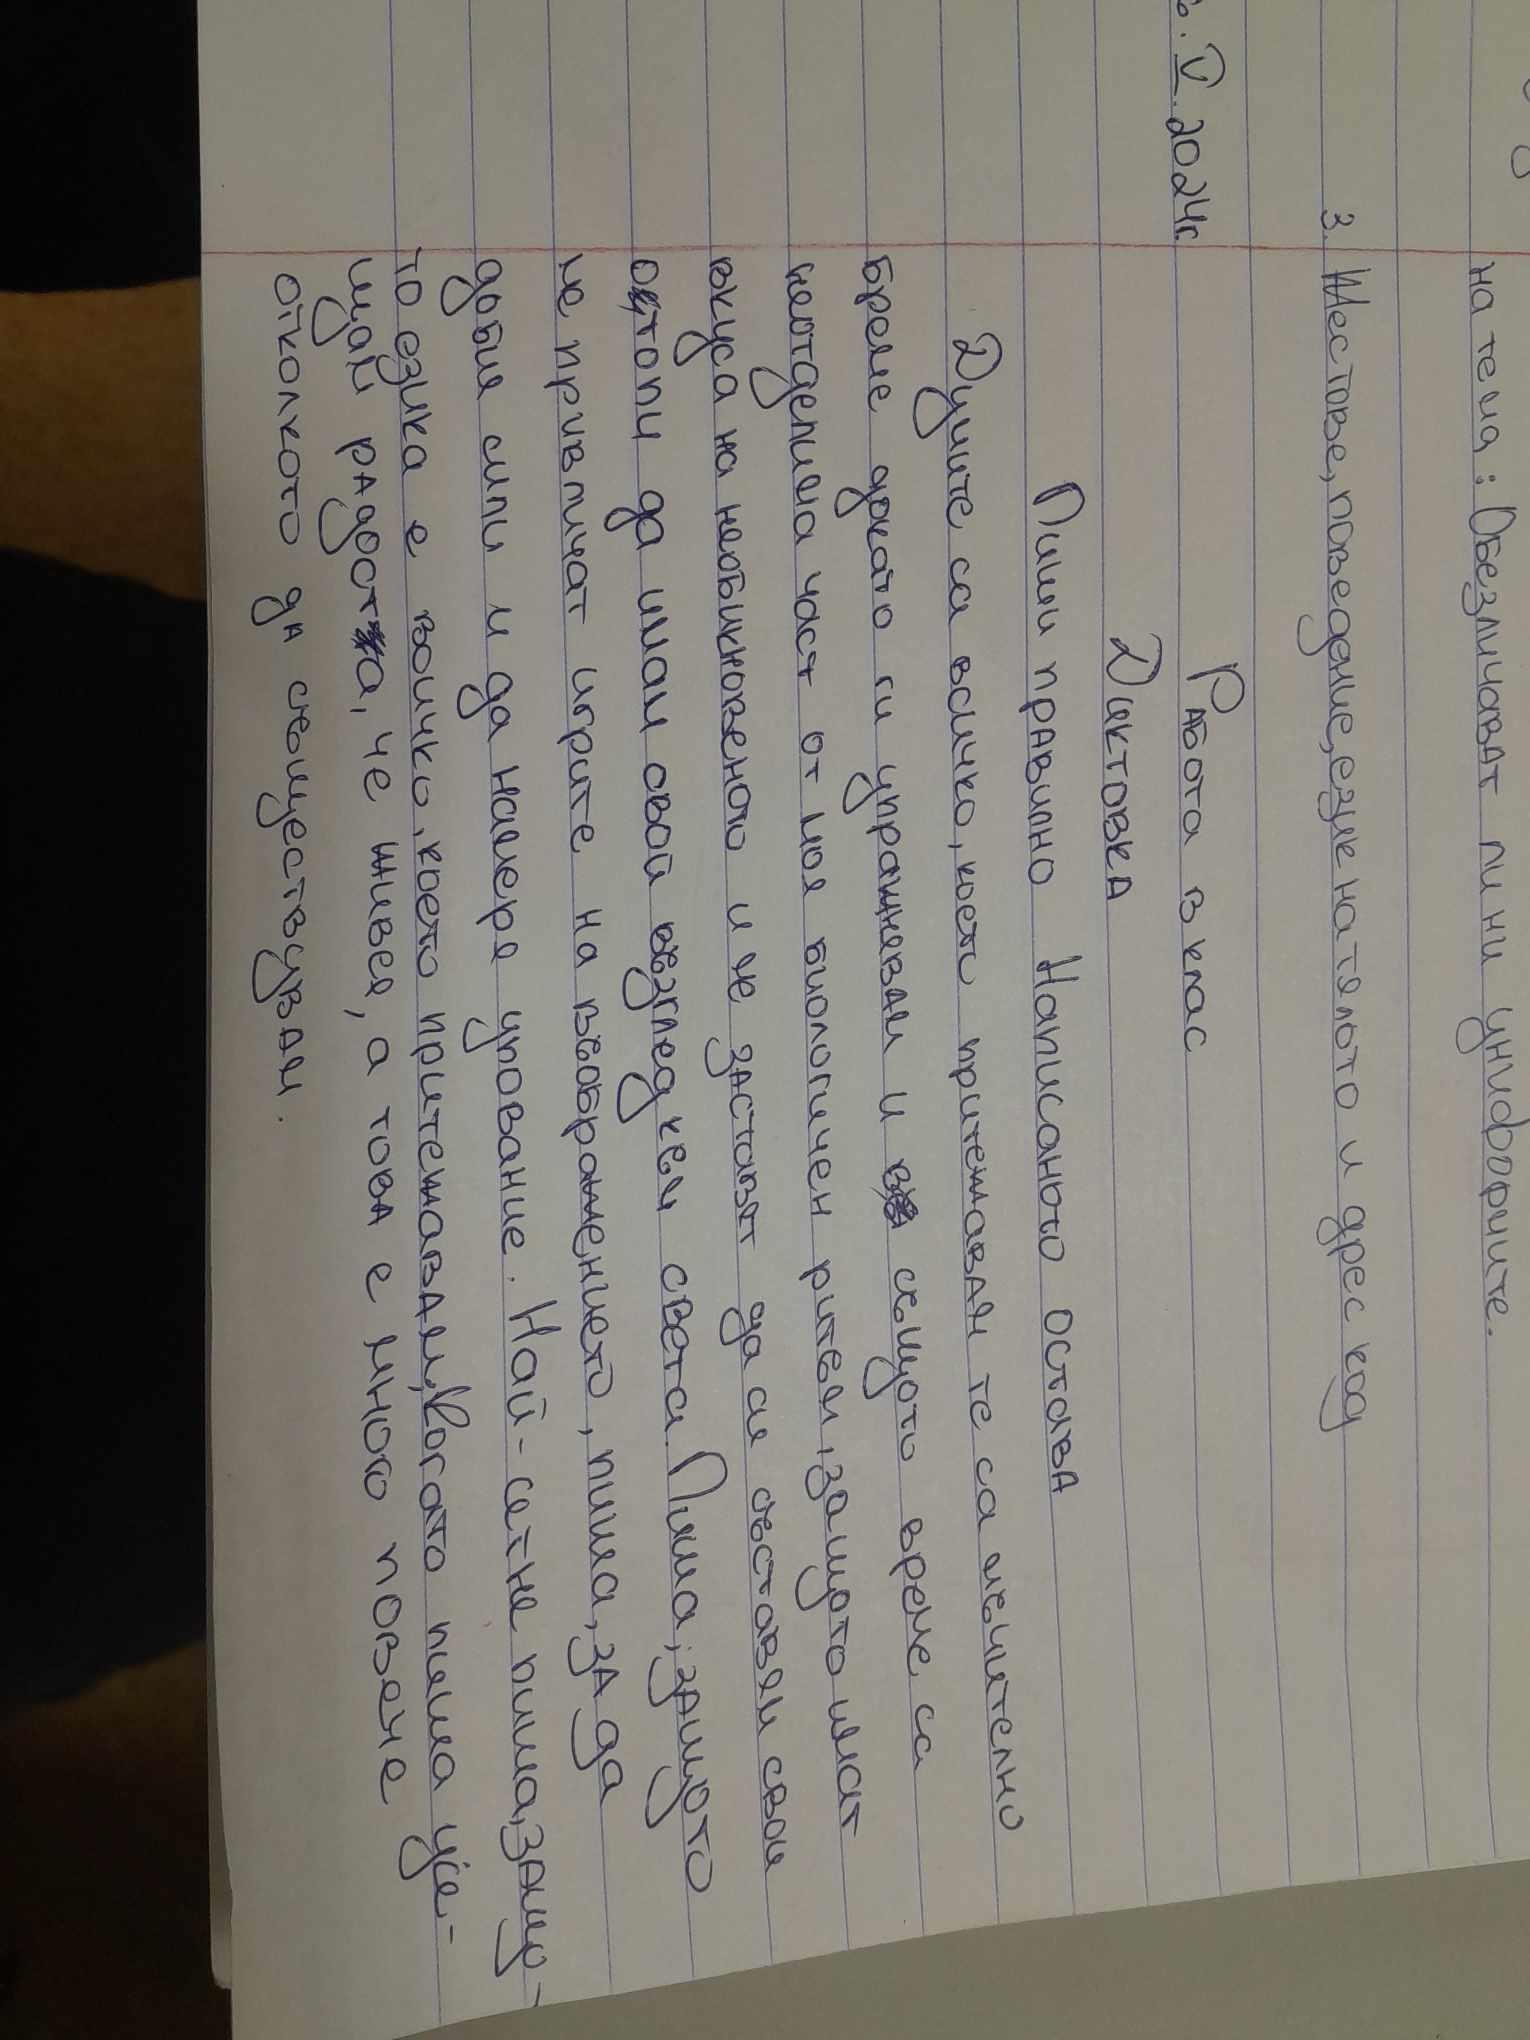 на тема: Обезличават ли ни униформите.
3. Жестове, поведение, език на тялото и дрес код
. V. 2024г.
Работа в клас
Диктовка
Пиши правилно Написаното остава
Думите са всичко, което притежавам те са мъчително
бреме докато ги упражнявам и в същото време са
неотделима част от моя биологичен ритъм, защото имат
вкуса на необикновеното и ме заставят да си съставям свои
утопи да имам свой възглед към света. Пиша, защото
ме привличат игрите на въображението, пиша, за да
добия сили и да намеря упование. Най-сетне пиша, защо-
то езика е всичко, което притежавам, Когато пиша усе-
щам радостта, че живея, а това е много повече
отколкото да съществувам.